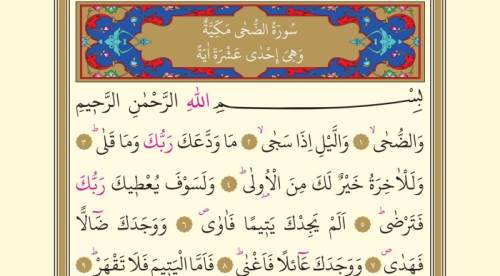 سُورَةُ الضُّحٰى مَكِّيَّةٌ
وَهِيَ اِحْدٰى عَشْرَةَ اٰيَةً
بِسْمِ اللّٰهِ الرَّحْمٰنِ الرَّحٖيمِ
وَالضُّحٰىۙ ﴿١﴾ وَالَّيْلِ اِذَا سَجٰىۙ ﴿٢﴾ مَا وَدَّعَكَ رَبُّكَ وَمَا قَلٰىؕ ﴿٣﴾
وَلَلْاٰخِرَةُ خَيْرٌ لَكَ مِنَ الْاُو۫لٰىؕ ﴿٤﴾ وَلَسَوْفَ يُعْطٖيكَ رَبُّكَ
فَتَرْضٰىؕ ﴿٥﴾ اَلَمْ يَجِدْكَ يَتٖيمًا فَاٰوٰىࣕ ﴿٦﴾ وَوَجَدَكَ ضَٓالًّا
فَهَدٰىࣕ ﴿٧﴾ وَوَجَدَكَ عَٓائِلًا فَاَغْنٰىؕ ﴿٨﴾ فَاَمَّا الْيَتٖيمَ فَلَا تَقْهَرْؕ ﴿٩﴾